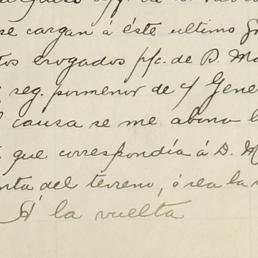 se cargan á éste ultimo
erogados p/c. de D. Ma
seg. pormenor de 4 Gene
causa se me abona l
que correspondía á D. M
nta del terreno, ó sea la
Á la vuelta